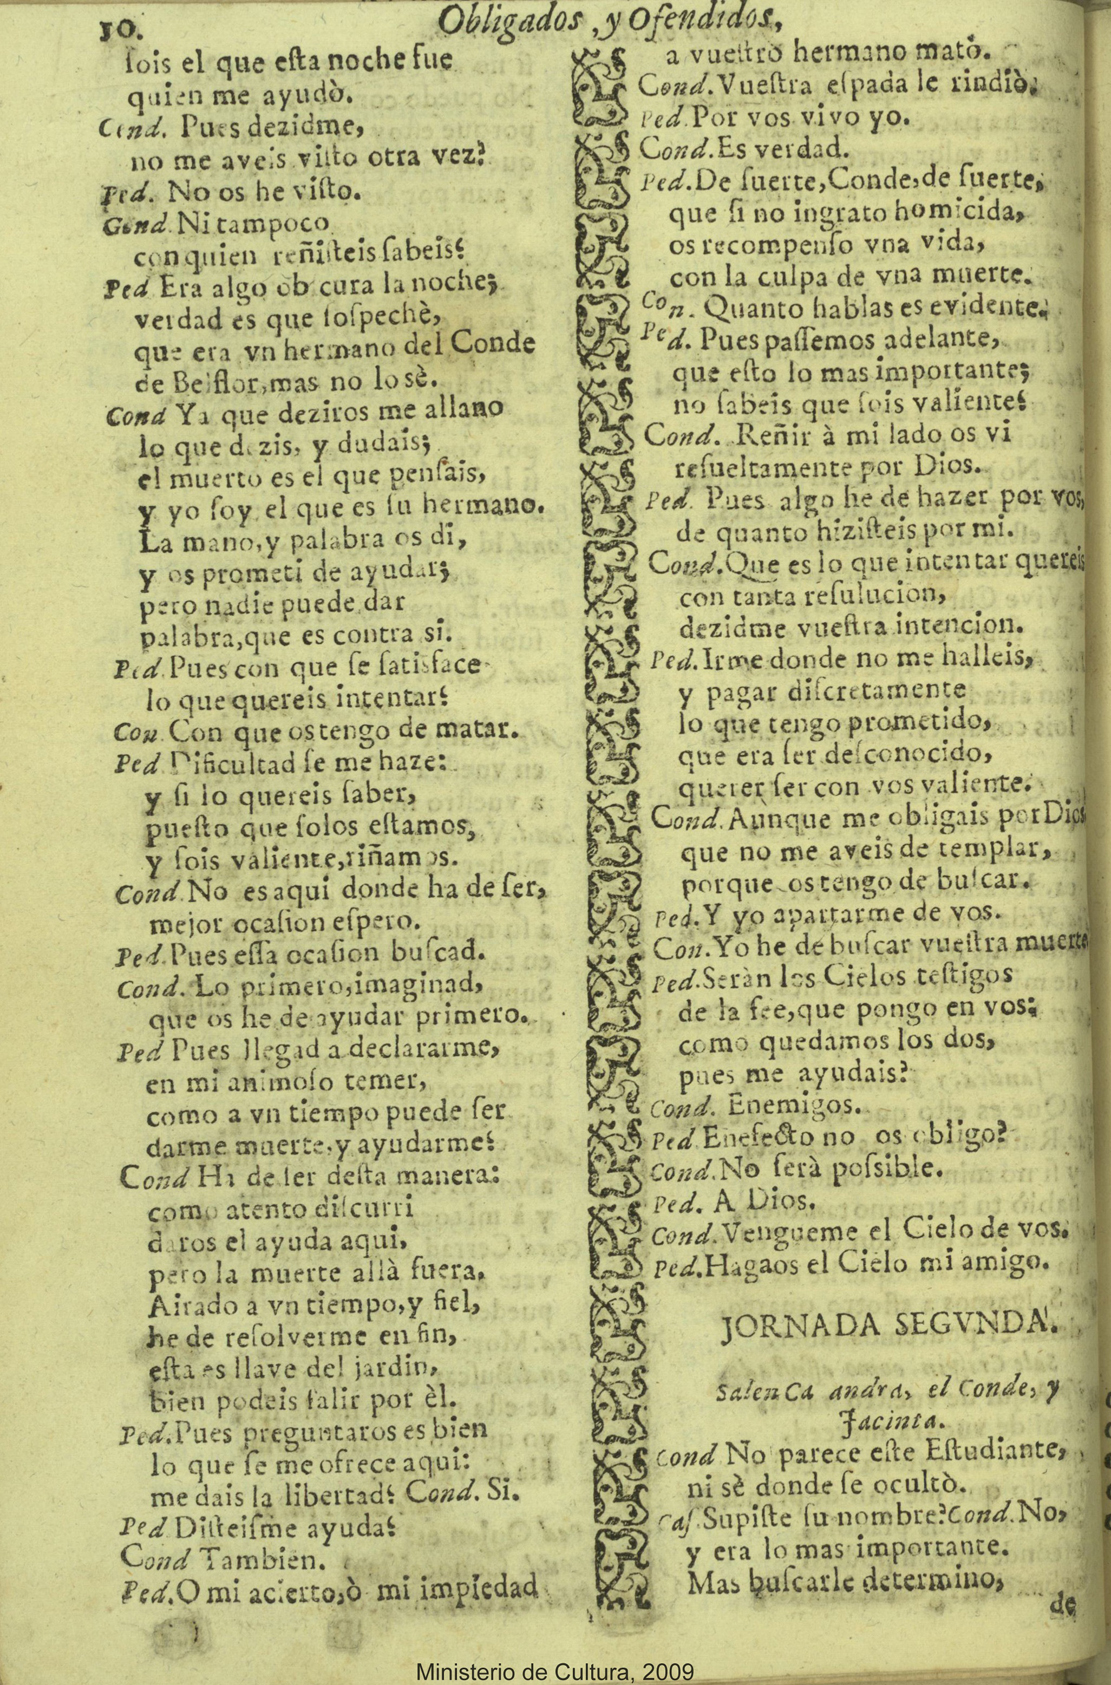 10.
Obligados, y Ofendidos,
sois el que esta noche fue
quien me ayudò.
Cond. Pues dezidme,
no me aveis visto otra vez?
Ped. No os he visto.
Cond. Ni tampoco
con quien reñisteis sabeis?
Ped Era algo obscura la noche;
verdad es que sospechè,
que era vn hermano del Conde
de Belflor, mas no lo sè.
Cond Ya que deziros me allano
lo que dezis, y dudais;
el muerto es el que pensais,
y yo soy el que es su hermano.
La mano, y palabra os di,
y os prometi de ayudar;
pero nadie puede dar
palabra, que es contra si.
Ped. Pues con que se satisface
lo que quereis intentar?
Con. Con que os tengo de matar.
Ped Dificultad se me haze:
y si lo quereis saber,
puesto que solos estamos,
y sois valiente, riñamos.
Cond. No es aqui donde ha de ser,
mejor ocasion espero.
Ped. Pues essa ocasion buscad.
Cond. Lo primero, imaginad,
que os he de ayudar primero.
Ped Pues llegad a declararme,
en mi animoso temer,
como a vn tiempo puede ser
darme muerte, y ayudarme?
Cond Ha de ser desta manera:
como atento discurri
daros el ayuda aqui,
pero la muerte allà fuera.
Airado a vn tiempo, y fiel,
he de resolverme en fin,
esta es llave del jardin,
bien podeis salir por èl.
Ped. Pues preguntaros es bien
lo que se me ofrece aqui:
me dais la libertad? Cond. Si.
Ped Disteisme ayuda?
Cond Tambien.
Ped. O mi acierto, ò mi impiedad
a vuestro hermano matò.
Cond. Vuestra espada le rindiò.
Ped. Por vos vivo yo.
Cond. Es verdad.
Ped. De suerte, Conde, de suerte,
que si no ingrato homicida,
os recompenso vna vida,
con la culpa de vna muerte.
Con. Quanto hablas es evidente.
Ped. Pues passemos adelante,
que esto lo mas importante;
no sabeis que sois valiente?
Cond. Reñir à mi lado os vi
resueltamente por Dios.
Ped. Pues algo he de hazer por vos,
de quanto hizisteis por mi.
Cond. Que es lo que intentar quereis
con tanta resulucion,
dezidme vuestra intencion.
Ped. Irme donde no me halleis,
y pagar discretamente
lo que tengo prometido,
que era ser desconocido,
querer ser con vos valiente.
Cond. Aunque me obligais por Dios
que no me aveis de templar,
porque os tengo de buscar.
Ped. Y yo apartarme de vos.
Con. Yo he de buscar vuestra muerte
Ped. Seràn los Cielos testigos
de la fee, que pongo en vos;
como quedamos los dos,
pues me ayudais?
Cond. Enemigos.
Ped. Enefecto no os obligo?
Cond. No serà possible.
Ped. A Dios.
Cond. Vengueme el Cielo de vos.
Ped. Hagaos el Cielo mi amigo.
JORNADA SEGVNDA.
Salen Casandra, el Conde, y
Jacinta.
Cond No parece este Estudiante,
ni sè donde se ocultò.
Cas. Supiste su nombre? Cond. No,
y era lo mas importante.
Mas buscarle determino,
de
Ministerio de Cultura, 2009